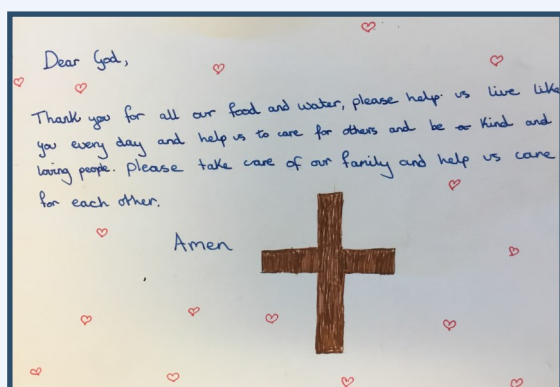 Dear God,
Thank you for all our food and water, please help us live like
you every day and help us to care for others and be kind and
loving people. please take care of our family and help us care
for each other.
Amen